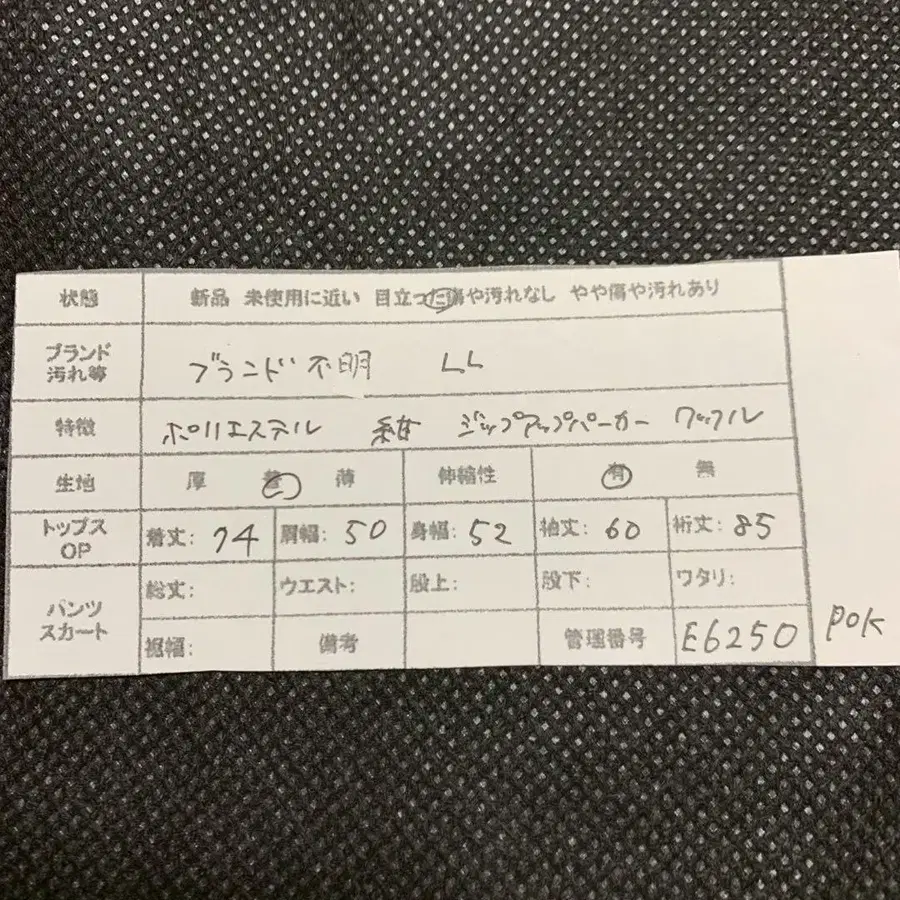 状態 新品 未使用に近い 目立った傷や汚れなし やや傷や汚れあり
ブランド
汚れ等 ブランド不明 LL
特徴 ポリエステル 紺 ジップアップパーカー ワッフル
生地 厚 普 薄 伸縮性 有 無
トップス
OP 着丈: 74 肩幅: 50 身幅: 52 袖丈: 60 裄丈: 85
パンツ
スカート 総丈: ウエスト: 股上: 股下: ワタリ:
裾幅: 備考 管理番号 E6250 POK